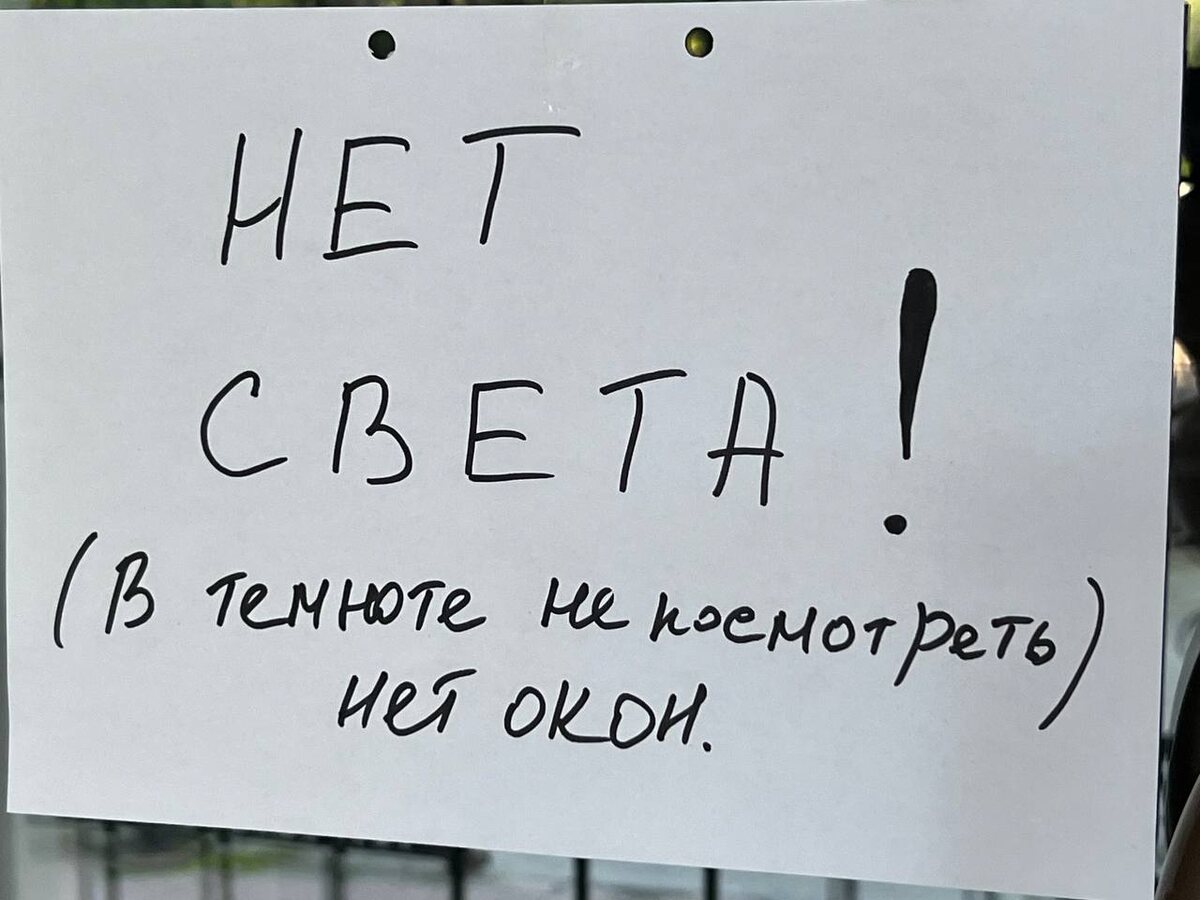 НЕТ
СВЕТА!
(В темноте не посмотреть)
нет окон.